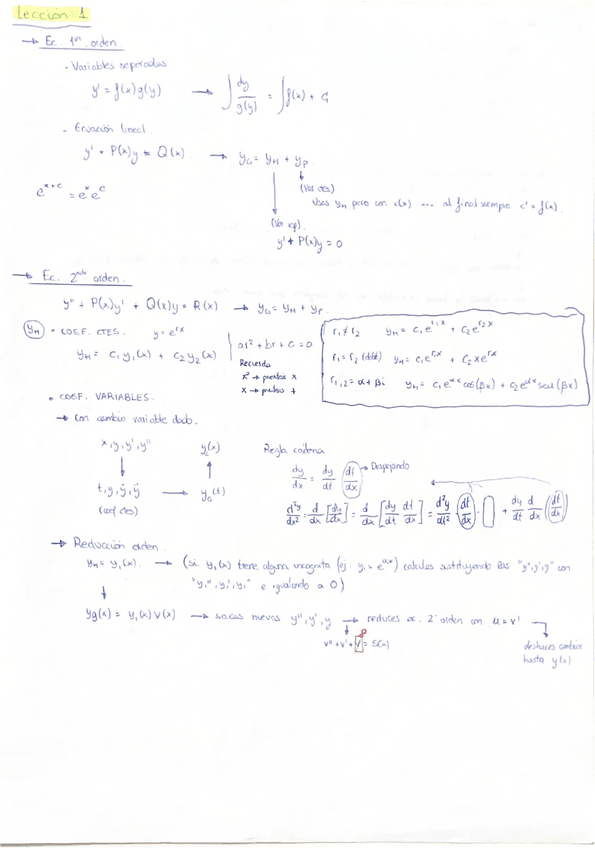 Lección 1
→ Ec. 1er orden
- Variables separadas
y' = f(x)g(y) → ∫ dy/g(y) = ∫ f(x) + C1
- Ecuación lineal.
y' + P(x)y = Q(x) → yG = yH + yP
e^(x+c) = e^x e^c
(Var ctes)
Usas yH pero con c(x) ... al final siempre c' = f(x).
y' + P(x)y = 0
→ Ec. 2ndo orden.
y'' + P(x)y' + Q(x)y = R(x) → yG = yH + yP
yH • COEF. CTES. y = e^(rx)
ar² + br + c = 0
yH = c1 y1(x) + c2 y2(x)
Recuerda
r1 ≠ r2 yH = c1 e^(r1x) + c2 e^(r2x)
r1 = r2 (doble) yH = c1 e^(rx) + c2 x e^(rx)
r1,2 = α + βi yH = c1 e^(αx) cos(βx) + c2 e^(αx) sen(βx)
• COEF. VARIABLES.
→ Con cambio variable dado.
x, y, y', y'' y(x)
t, y, ẏ, ÿ → yG(t)
(coef ctes)
Regla cadena
dy/dx = dy/dt dt/dx → Despejando
d²y/dx² = d/dx [dy/dx] = d/dx [dy/dt dt/dx] = d²y/dt² · dt/dx · [ ] + dy/dt d/dx (dt/dx)
→ Reducción orden.
yH = y1(x). → (si y1(x) tiene alguna incognita (ej: y1 = e^(ax)) calculas sustituyendo las "y'', y', y" con
"y1'', y1', y1" e igualando a 0)
yg(x) = y1(x) v(x) → sacas nuevas y'', y', y → reduces ec. 2º orden con u = v'
v'' + v' + v = S(x)
deshaces cambios
hasta y(x)